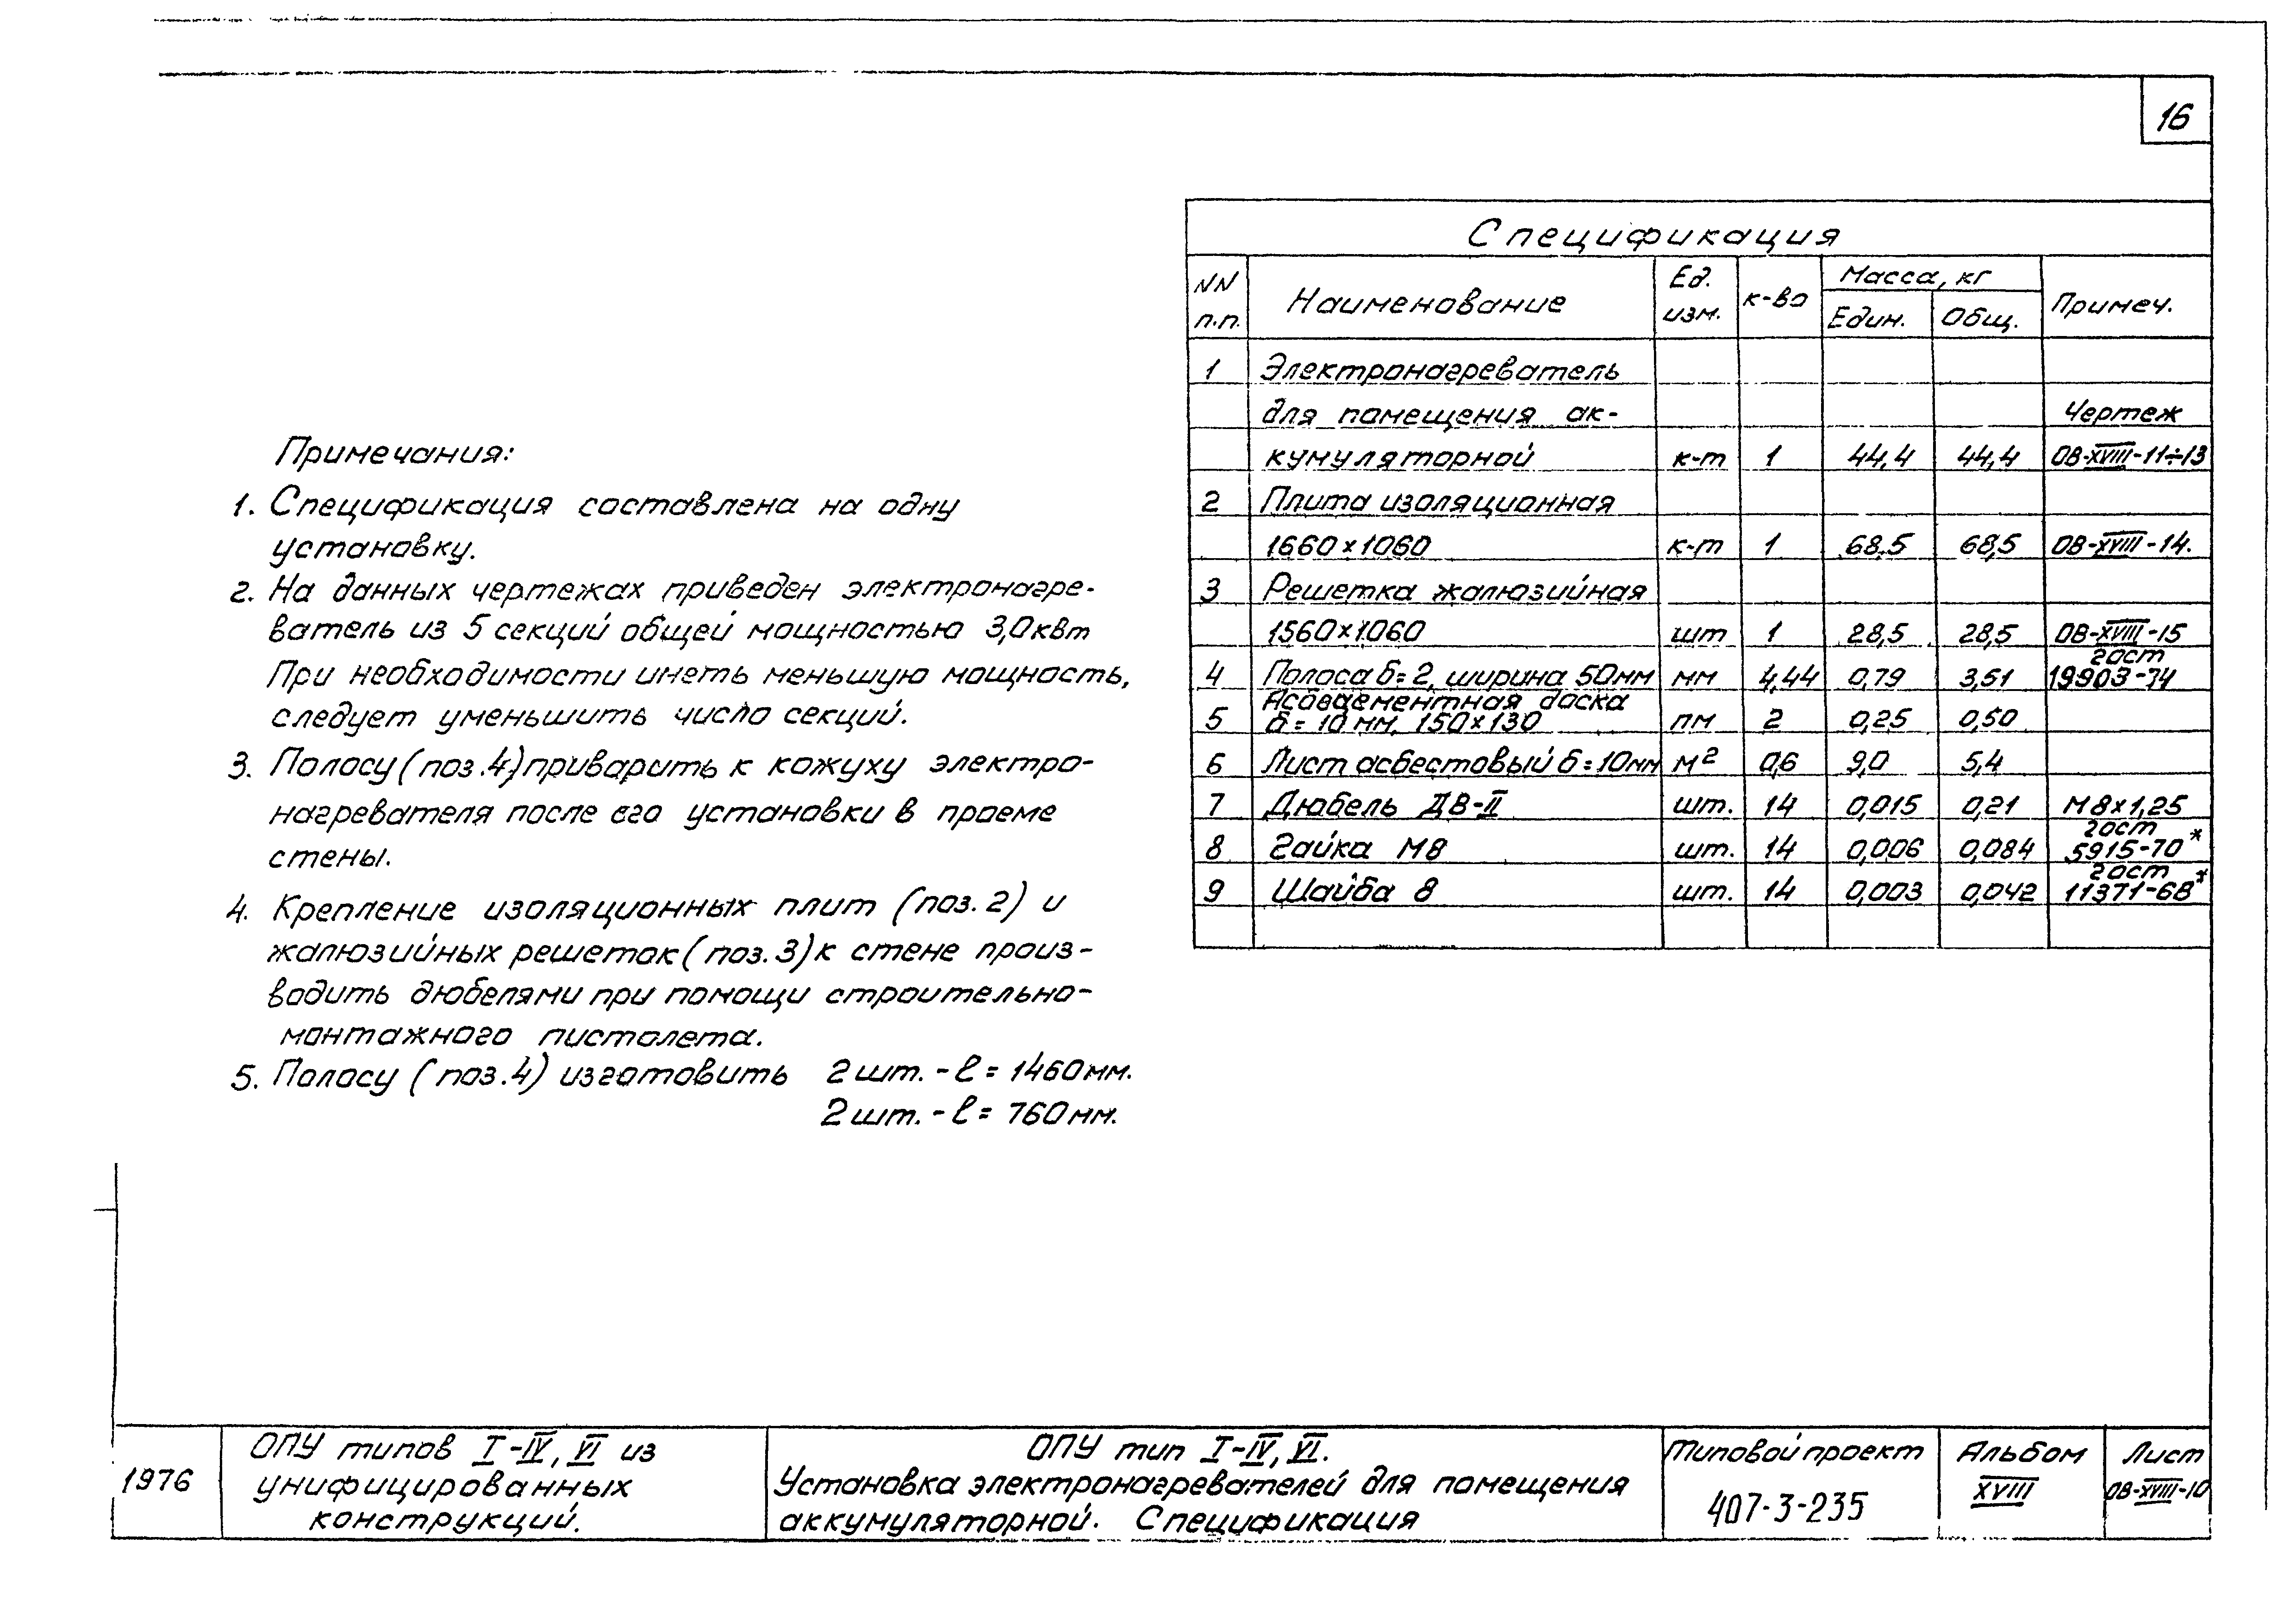 16
Примечания:
1. Спецификация составлена на одну
установку.
2. На данных чертежах приведен электронагре-
ватель из 5 секций общей мощностью 3,0квт
При необходимости иметь меньшую мощность,
следует уменьшить число секций.
3. Полосу (поз.4) приварить к кожуху электро-
нагревателя после его установки в проеме
стены.
4. Крепление изоляционных плит (поз.2) и
жалюзийных решеток (поз.3) к стене произ-
водить дюбелями при помощи строительно-
монтажного пистолета.
5. Полосу (поз.4) изготовить 2 шт. - ℓ = 1460мм.
2 шт. - ℓ = 760мм.
Спецификация
NN п.п. Наименование Ед. изм. к-во Масса, кг Един. Общ. Примеч.
1 Электронагреватель
для помещения ак- Чертеж
кумуляторной к-т 1 44,4 44,4 ОВ-XVIII-11÷13
2 Плита изоляционная
1660×1060 к-т 1 68,5 68,5 ОВ-XVIII-14.
3 Решетка жалюзийная
1560×1060 шт 1 28,5 28,5 ОВ-XVIII-15
4 Полоса б=2, ширина 50мм мм 4,44 0,79 3,51 гост 19903-74
5 Асбоцементная доска б=10 мм, 150×130 пм 2 0,25 0,50
6 Лист асбестовый б=10мм м² 0,6 9,0 5,4
7 Дюбель ДВ-II шт. 14 0,015 0,21 М8×1,25
8 Гайка М8 шт. 14 0,006 0,084 гост 5915-70*
9 Шайба 8 шт. 14 0,003 0,042 гост 11371-68*
1976
ОПУ типов I-IV, VI из
унифицированных
конструкций.
ОПУ тип I-IV, VI.
Установка электронагревателей для помещения
аккумуляторной. Спецификация
Типовой проект
407-3-235
Альбом
XVIII
Лист
ОВ-XVIII-10